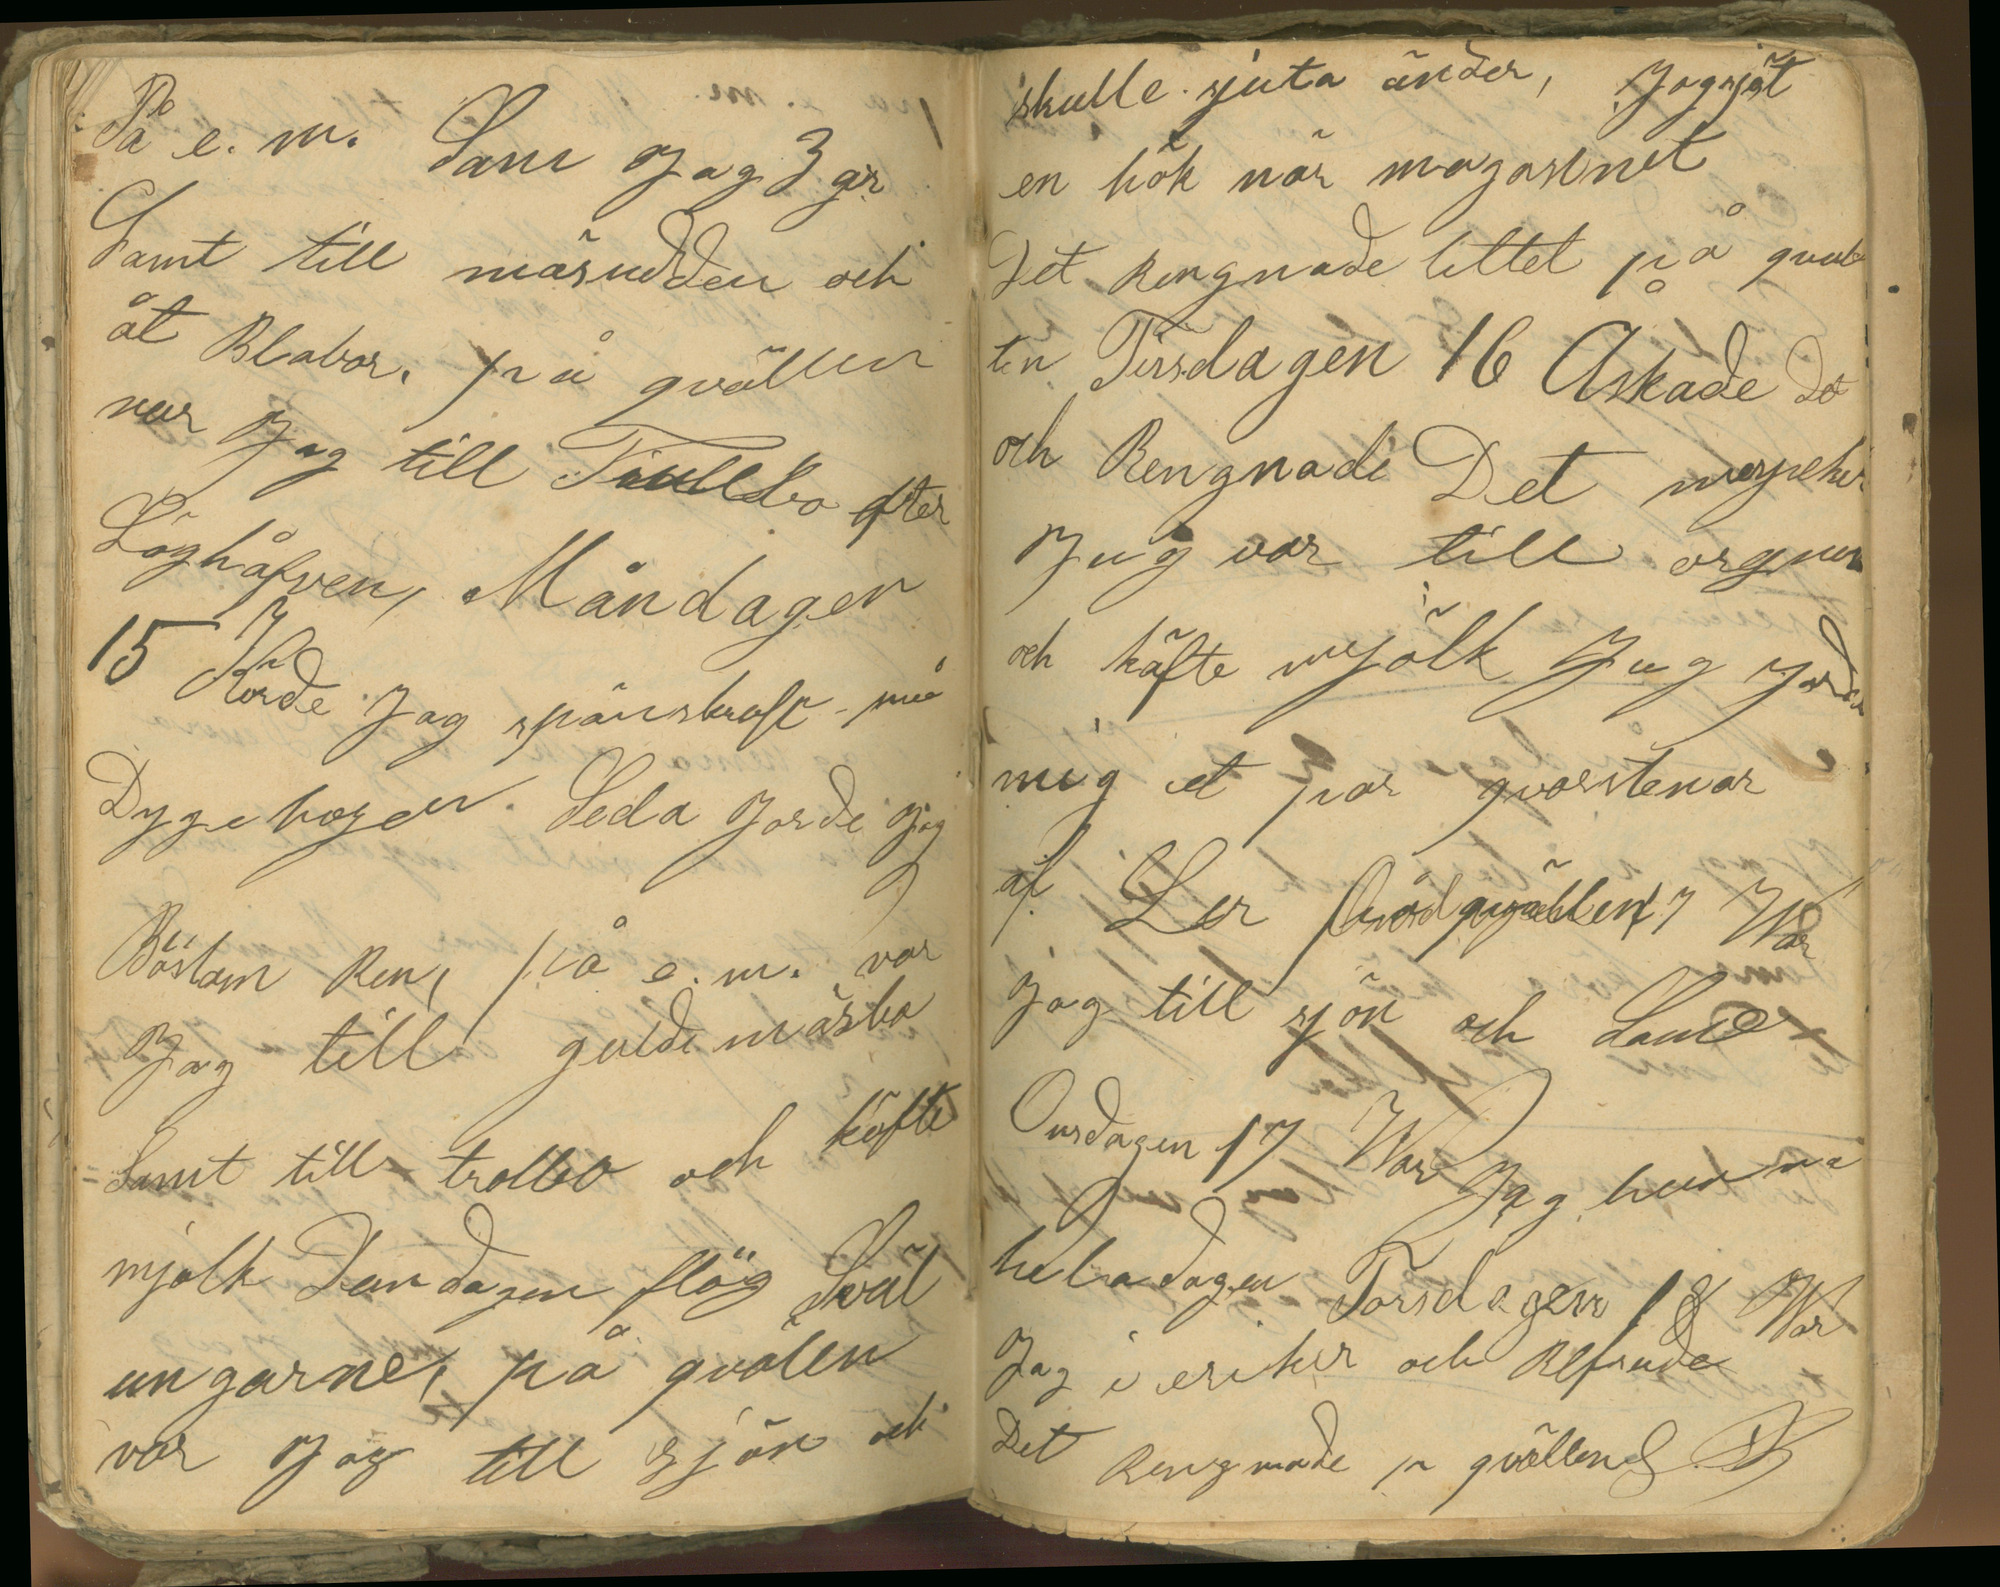 På e. m. Sam Jag 3 gr
Samt till måsudden och
åt Blabor. på qvällen
var Jag till Trullbo efter
Löghåfven, Måndagen
15 7 Körde Jag spånskraft på
Dyge hogen. Seda Jorde jag
Böstam Ren, på e. m. var
Jag till guldemåsbo
Samt till trollbo och köfte
mjölk Den dagen flög Sval
ungarne, på qvälen
var Jag till sjön och
skulle sjuta änder, Jag sjöt
en hök när magasinet
Det Rengnade littet på qväl
len Tirsdagen 16 Åskade Det
och Rengnade Det
Jag var till
och käfte mjölk Jag Jorde
mig et par qvarstenar
af Ler på qvällen War
Jag till sjön och Samt
Onsdagen 17 War Jag hemma
hela dagen Torsdagen 18 War
Jag i eriker och Refsade
Det Rengnade p qvällen